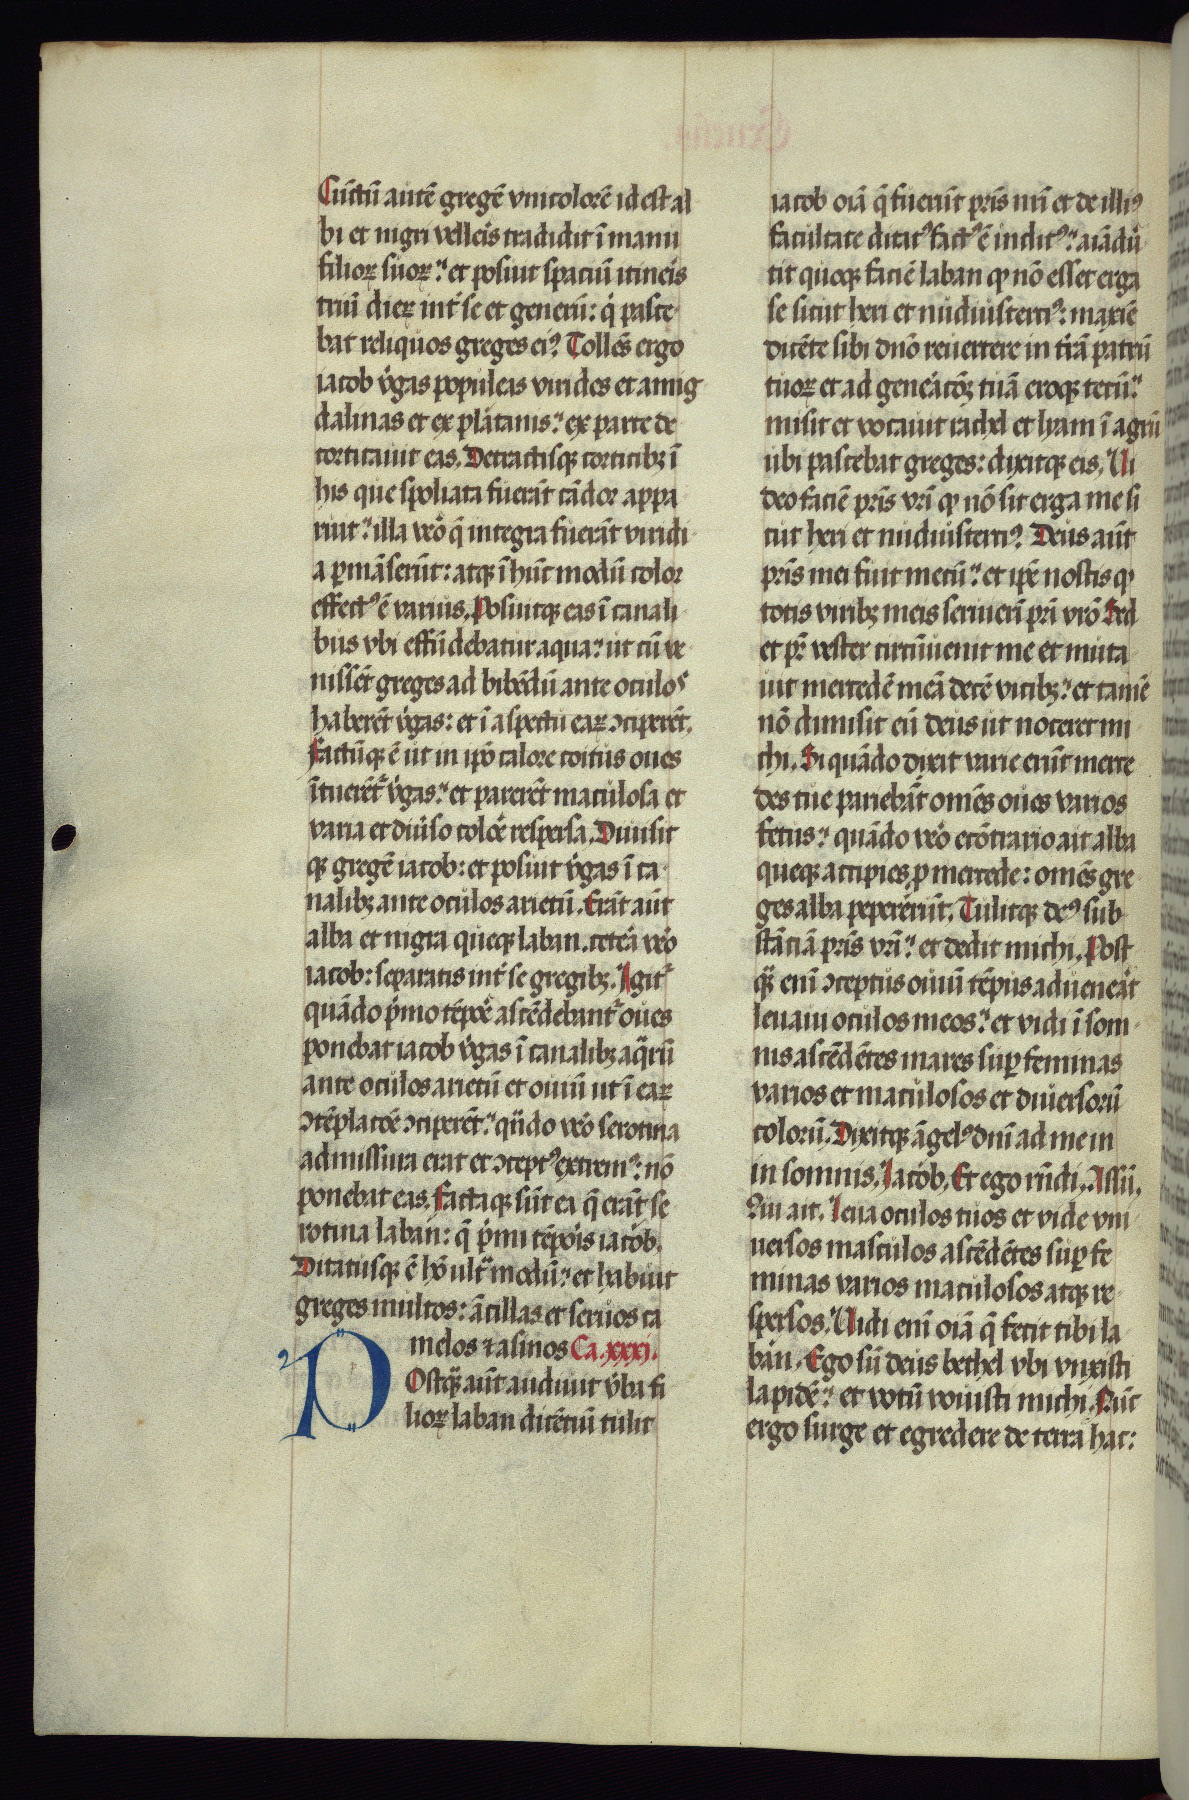 Cūctū autē gregē vnicolorē id est al
bi et nigri velleris tradidit ī manu
filioꝝ suoꝝ. et posuit spaciū itineris
triū dieꝝ int̄ se et generū: q̇ pasce
bat reliquos greges eiꝰ Tollēs ergo
iacob v̓gas populeas virides et amig
dalinas et ex platanis. ex parte de
corticauit eas. Detractisqꝫ corticibꝫ ī
his que spoliata fuerāt cādor appa
ruit. illa v̓o q̄ integra fuerāt viridi
a ꝑmāserūt: atqꝫ ī hūc modū color
effectꝰ ē varius. Posuitqꝫ eas ī canali
bus vbi effūdebatur aqua. ut cū ve
nissēt greges ad bibēdū ante oculos
haberēt v̓gas: et ī aspectu eaꝝ ꝯciperēt.
Factūqꝫ ē ut in ip̄o calore coitus oues
ītuerēt v̓gas. et parerēt maculosa et
varia et diu̓so colore respersa. Diuisit
qꝫ gregē iacob: et posuit v̓gas ī ca
nalibꝫ ante oculos arietū. Erāt aūt
alba et nigra queqꝫ laban. cetera v̓o
iacob: separatis int̄ se gregibꝫ. Igit̄
quādo p̓mo tēpore ascēdebant̄ oues
ponebat iacob v̓gas ī canalibꝫ aq̄rū
ante oculos arietū et ouiū ut ī eaꝝ
ꝯtēplacōe ꝯciperēt. qn̄do v̓o serotina
admissura erat et ꝯceptꝰ extremꝰ: nō
ponebat eas. Factaqꝫ sūt ea q̄ erāt se
rotina laban: q̄ p̓mi tēporis iacob.
Ditatusqꝫ ē hō ult̄ modū. et habuit
greges multos: ācillas et seruos ca
melos ⁊ asinos Ca. xxxi.
POstq̄ꝫ aūt audiuit v̓ba fi
lioꝝ laban dicētiū tulit
iacob oīa q̄ fuerūt pr̄is nr̄i et de illiꝰ
facultate ditatꝰ factꝰ ē inclitꝰ. aīaduer
tit quoqꝫ faciē laban ꝙ nō esset erga
se sicut heri et nudiustertiꝰ: maxīe
dicēte sibi dn̄o reuertere in t̄rā patrū
tuoꝝ et ad generacōeꝫ tuā eroqꝫ tecū.
misit et vocauit rachel et lyam ī agrū
ubi pascebat greges: dixitqꝫ eis. Ui
deo faciē pr̄is vr̄i ꝙ nō sit erga me si
cut heri et nudiustertiꝰ Deus aūt
pr̄is mei fuit mecū. et ip̄e nostis ꝙ
totis viribꝫ meis seruierī pr̄i vr̄o Sed
et pr̄ vester circūuenit me et muta
uit mercedē meā decē vicibꝫ. et tamē
nō dimisit eū deus ut noceret mi
chi. Si quādo dixit varie erūt merce
des tue pariebāt omēs oues varios
fetus. quādo v̓o ecōtrario ait alba
queqꝫ accipies ꝓ mercede: omēs gre
ges alba pepererūt. Tulitqꝫ deꝰ sub
stāciā pr̄is vr̄i. et dedit michi. Post
q̄ꝫ enī ꝯceptus ouiū tēpus aduenerat
leuaui oculos meos. et vidi ī som
nis ascēdētes mares suꝑ feminas
varios et maculosos et diuersorū
colorū. Dixitqꝫ āgelꝰ dn̄i ad me in
in somnis. Iacob. Et ego rn̄di. Assū.
Qui ait. Leua oculos tuos et vide vni
uersos masculos ascēdētes suꝑ fe
minas varios maculosos atqꝫ re
spersos. Uidi enī oīa q̄ fecit tibi la
ban. Ego sū deus bethel vbi vnxisti
lapidē. et votū vouisti michi. Nūc
ergo surge et egredere de terra hac: